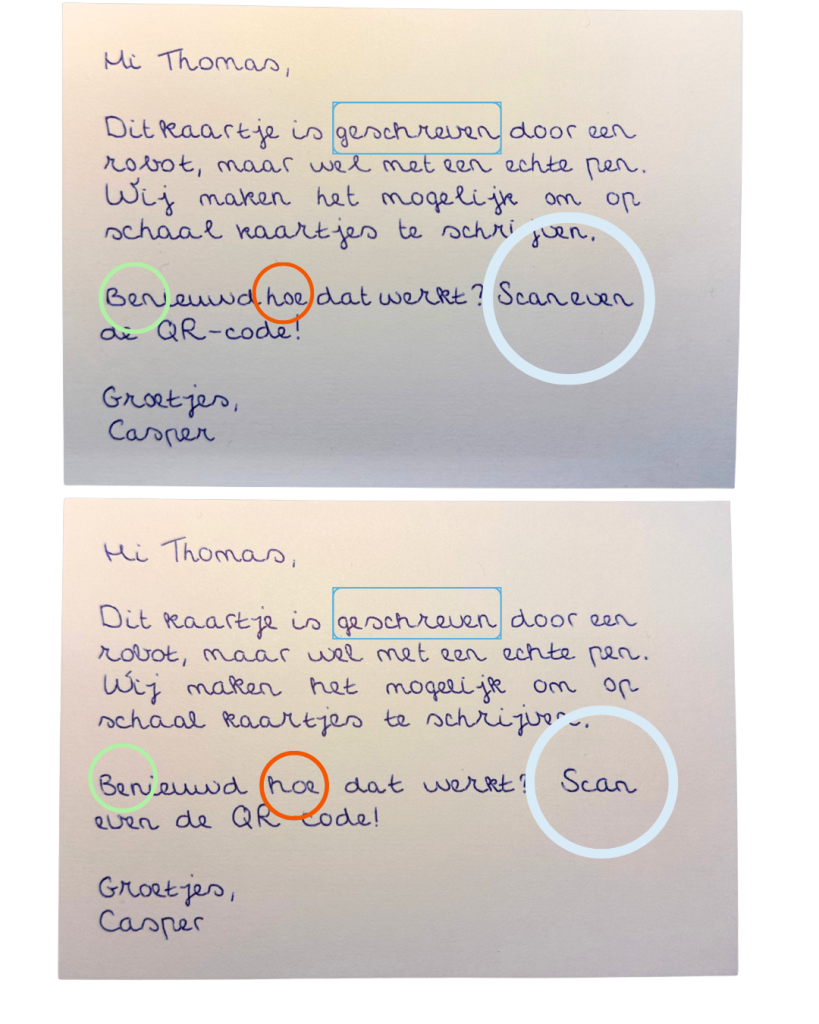 Hi Thomas,
Dit kaartje is geschreven door een
robot, maar wel met een echte pen.
Wij maken het mogelijk om op
schaal kaartjes te schrijven.
Benieuwd hoe dat werkt? Scan even
de QR-code!
Groetjes,
Casper
Hi Thomas,
Dit kaartje is geschreven door een
robot, maar wel met een echte pen.
Wij maken het mogelijk om op
schaal kaartjes te schrijven.
Benieuwd hoe dat werkt? Scan
even de QR code!
Groetjes,
Casper